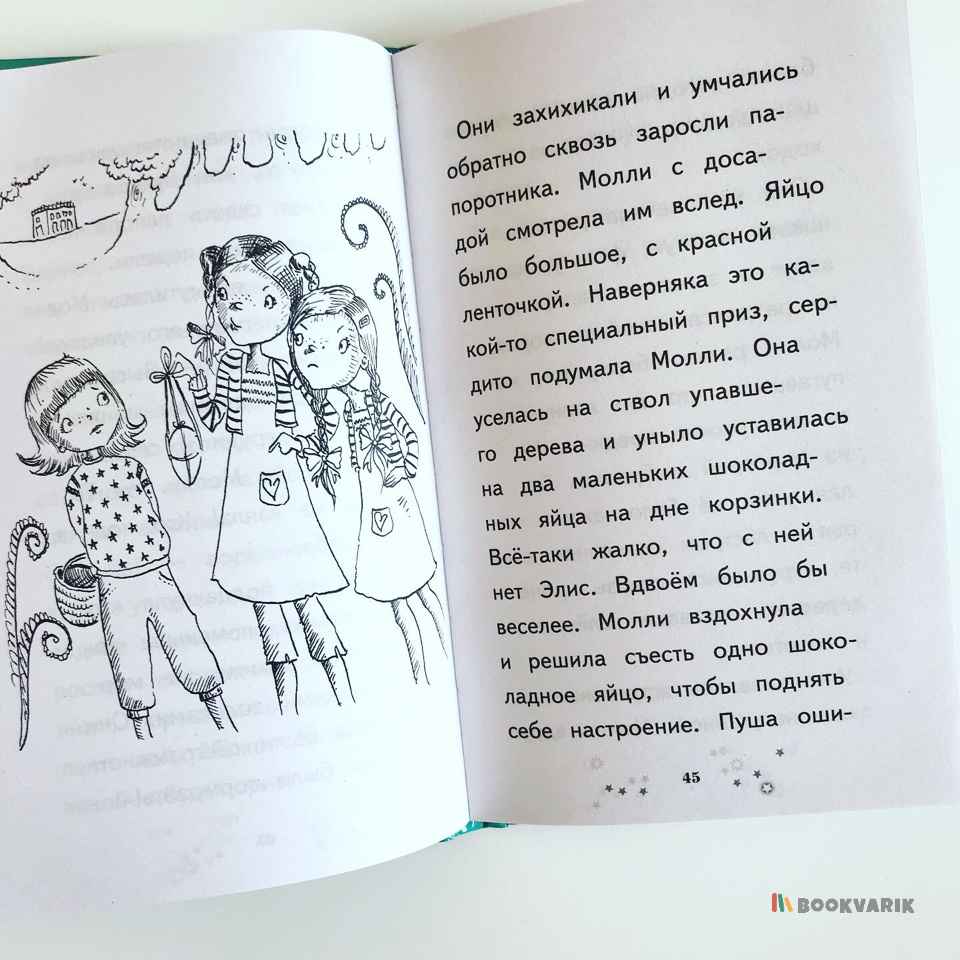 Они захихикали и умчались
обратно сквозь заросли па-
поротника. Молли с доса-
дой смотрела им вслед. Яйцо
было большое, с красной
ленточкой. Наверняка это ка-
кой-то специальный приз, сер-
дито подумала Молли. Она
уселась на ствол упавше-
го дерева и уныло уставилась
на два маленьких шоколад-
ных яйца на дне корзинки.
Всё-таки жалко, что с ней
нет Элис. Вдвоём было бы
веселее. Молли вздохнула
и решила съесть одно шоко-
ладное яйцо, чтобы поднять
себе настроение. Пуша оши-
45
BOOKVARIK